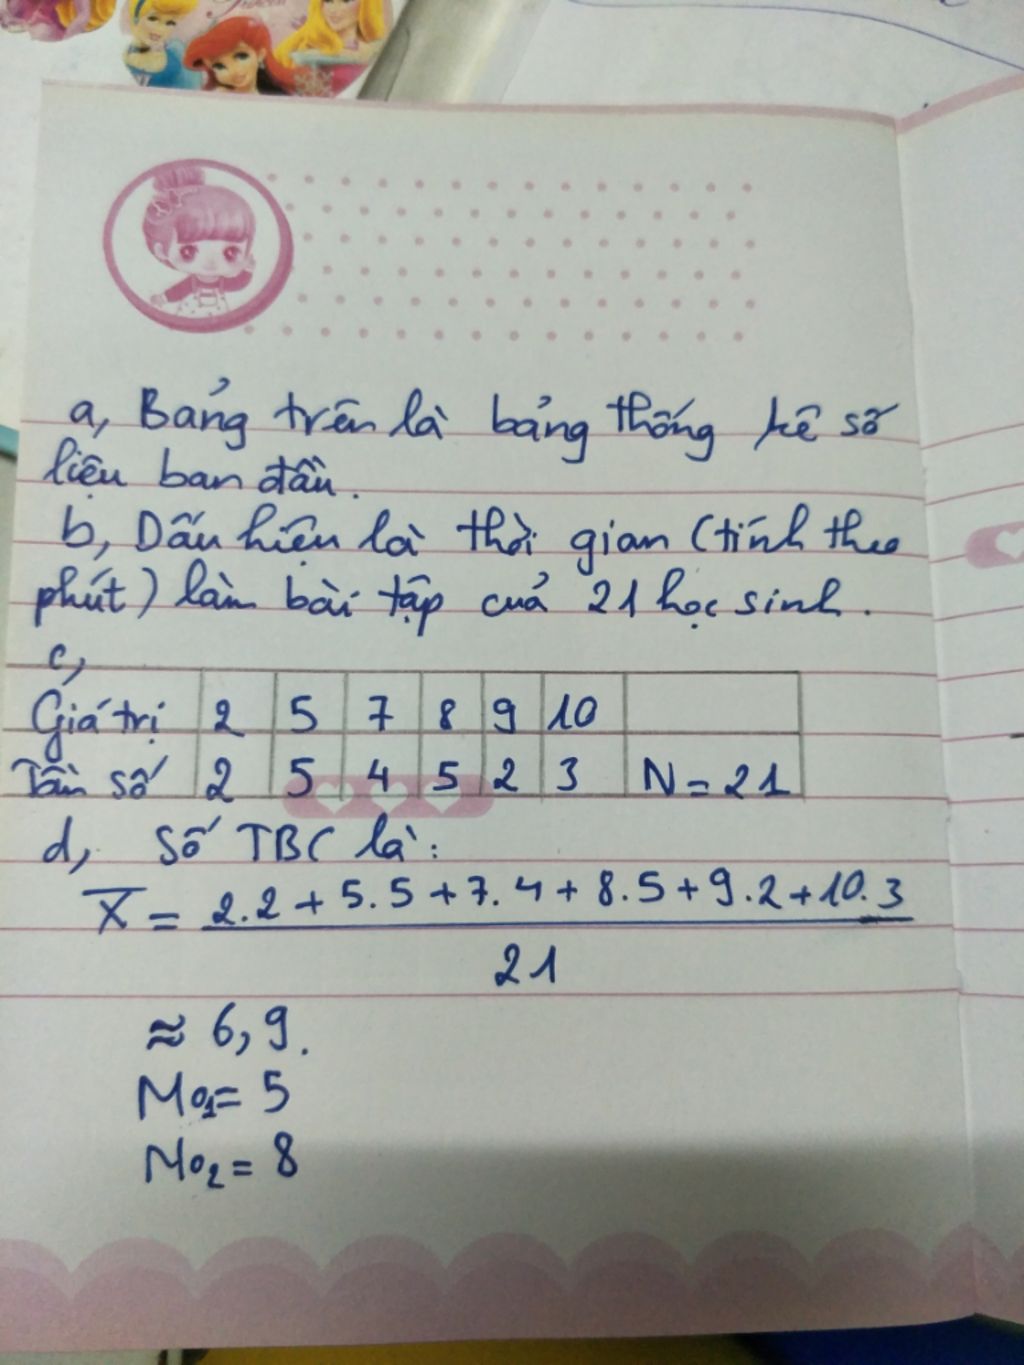 a, Bảng trên là bảng thống kê số
liệu ban đầu.
b, Dấu hiệu là thời gian (tính theo
phút) làm bài tập của 21 học sinh.
c,
Giá trị 2 5 7 8 9 10
Tần số 2 5 4 5 2 3 N = 21
d, Số TBC là:
X̅ = 2.2 + 5.5 + 7.4 + 8.5 + 9.2 + 10.3
21
≈ 6,9.
Mo1 = 5
Mo2 = 8